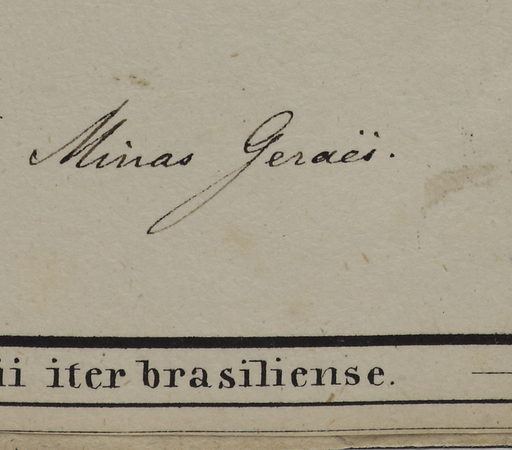 Minas Geraës.
ii iter brasiliense.